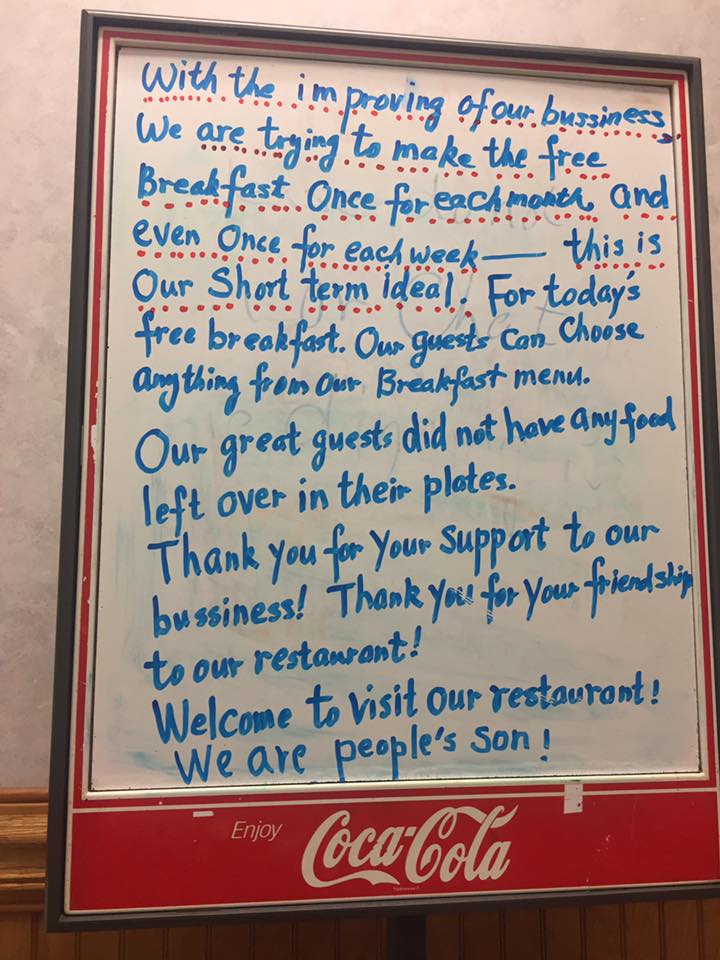 With the improving of our bussiness,
We are trying to make the free
Breakfast Once for each month, and
even Once for each week — this is
Our Short term ideal. For today's
free breakfast. Our guests Can Choose
anything from Our Breakfast menu.
Our great guests did not have any food
left over in their plates.
Thank you for your support to our
bussiness! Thank you for your friendship
to our restaurant!
Welcome to visit our restaurant!
We are people's son!
Enjoy
Coca-Cola